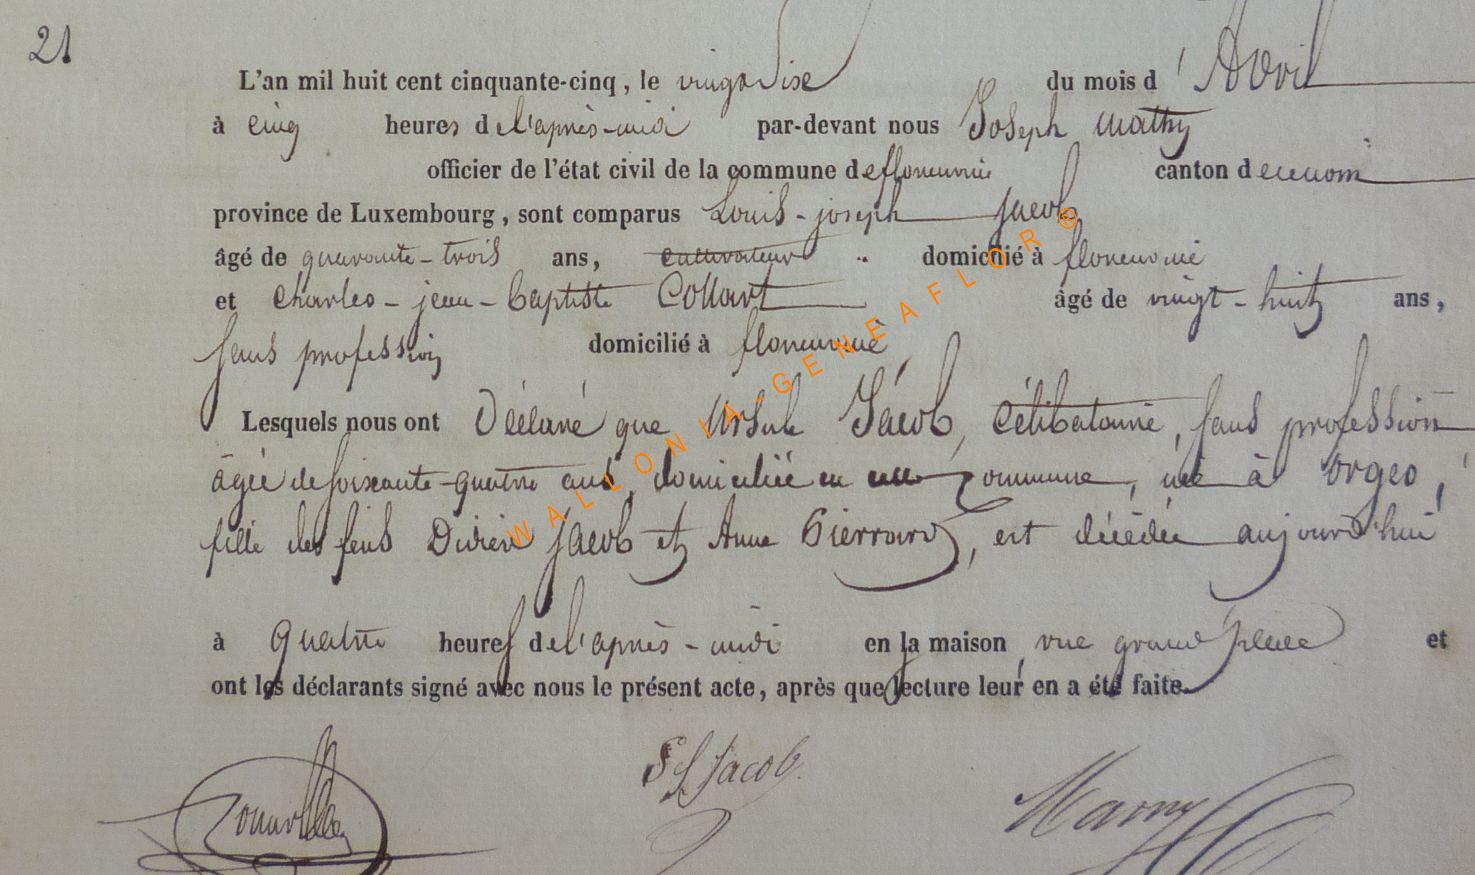 21
L'an mil huit cent cinquante-cinq, le vingt-six du mois d'Avril
à cinq heures de l'après-midi par-devant nous Joseph Mathy
officier de l'état civil de la commune de florenville canton de
province de Luxembourg, sont comparus Louis-joseph Jacob
âgé de quarante-trois ans, cultivateur domicilié à florenville
et Charles-jean-baptiste Collart âgé de vingt-huit ans,
sans profession domicilié à florenville
Lesquels nous ont Déclaré que Ursule Jacob, Célibataire, sans profession
âgée de soixante-quatre ans, domiciliée en cette commune, née à orgeo,
fille des feus Didier Jacob et Anne Pierrard, est décédée aujourd'hui
à quatre heures de l'après-midi en la maison, rue grand place et
ont les déclarants signé avec nous le présent acte, après que lecture leur en a été faite.
Jacob
WALLONIA-GENEAFLOR®